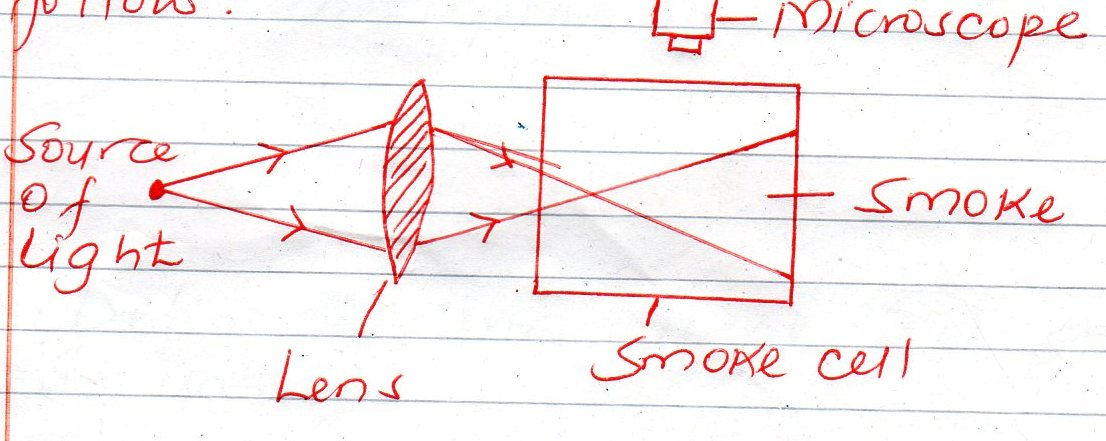 follows:
Microscope
Source
of
light
Smoke
Lens
Smoke cell